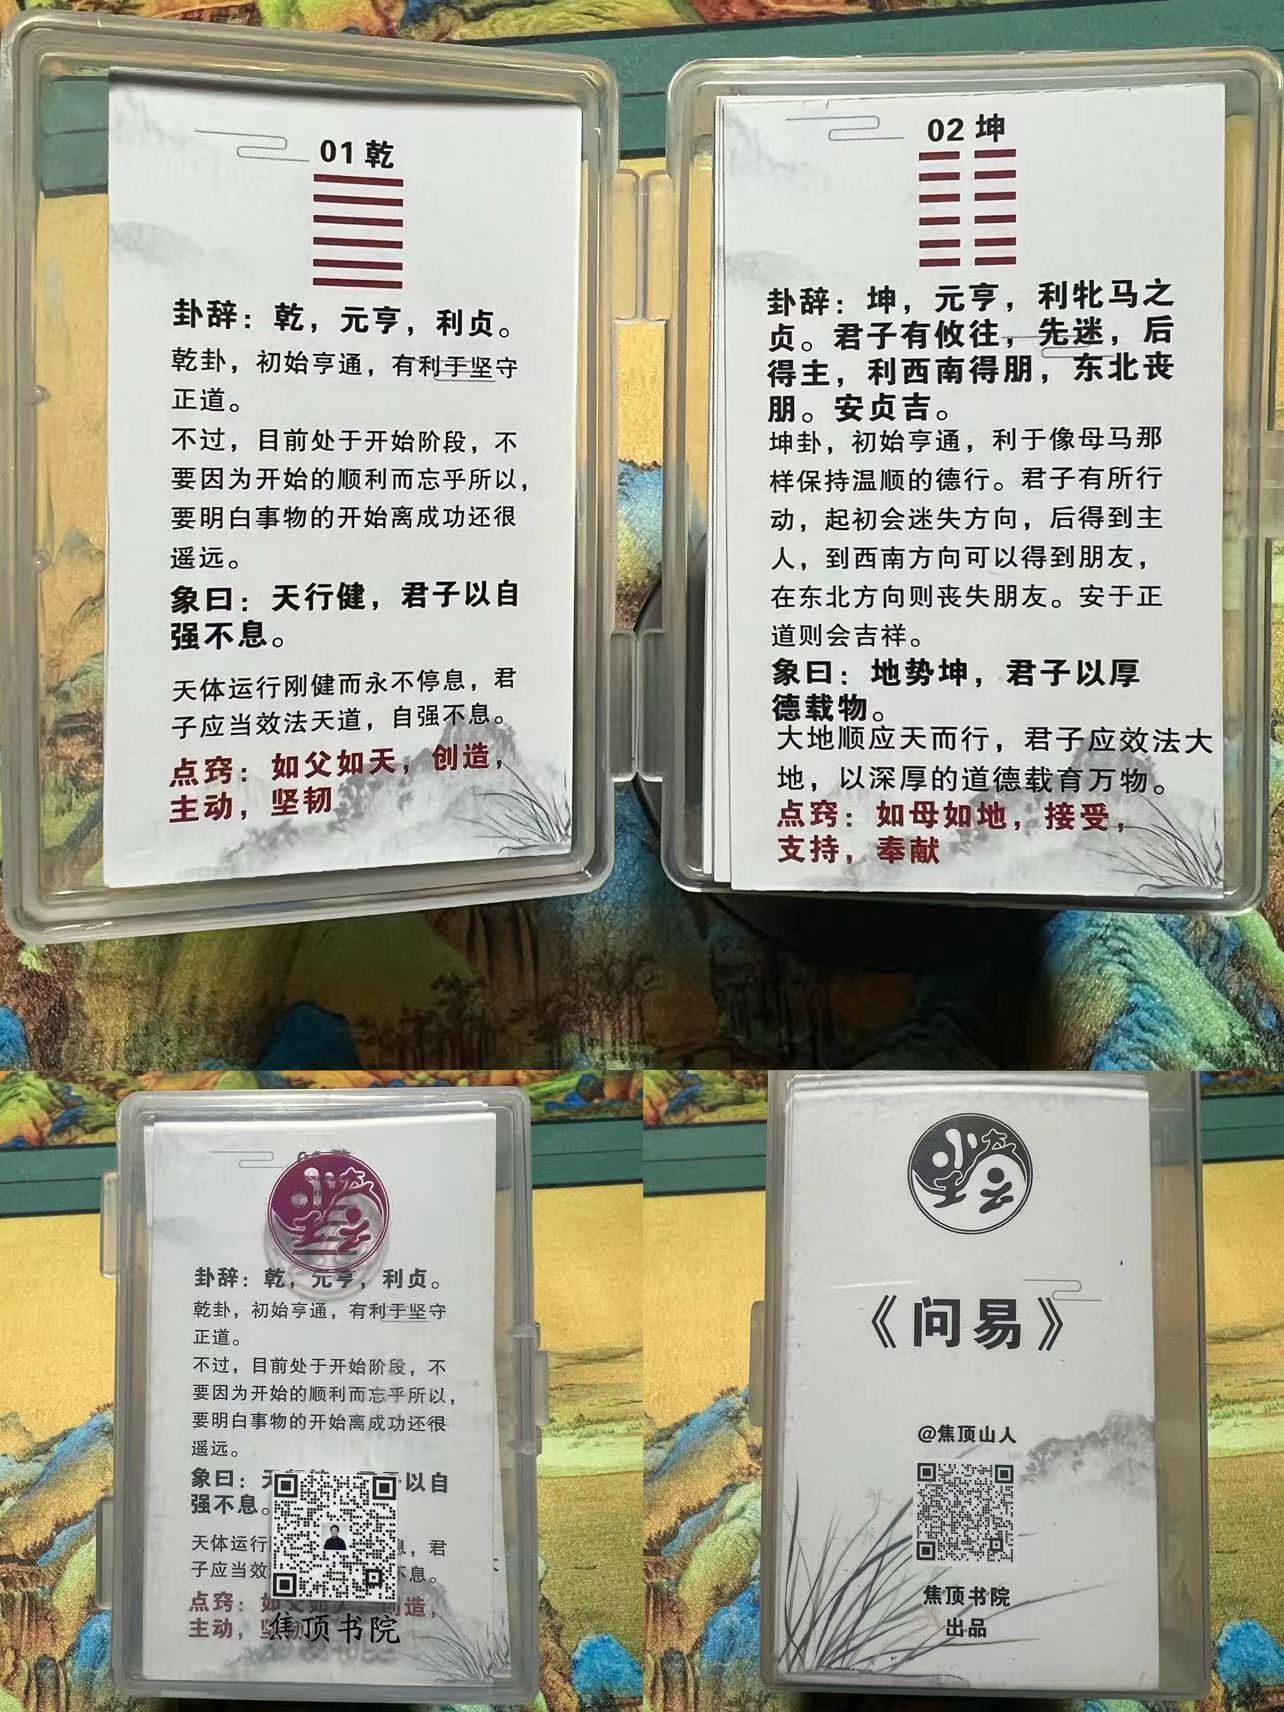 01 乾
卦辞：乾，元亨，利贞。
乾卦，初始亨通，有利于坚守
正道。
不过，目前处于开始阶段，不
要因为开始的顺利而忘乎所以，
要明白事物的开始离成功还很
遥远。
象曰：天行健，君子以自
强不息。
天体运行刚健而永不停息，君
子应当效法天道，自强不息。
点窍：如父如天，创造，
主动，坚韧
02 坤
卦辞：坤，元亨，利牝马之
贞。君子有攸往，先迷，后
得主，利西南得朋，东北丧
朋。安贞吉。
坤卦，初始亨通，利于像母马那
样保持温顺的德行。君子有所行
动，起初会迷失方向，后得到主
人，到西南方向可以得到朋友，
在东北方向则丧失朋友。安于正
道则会吉祥。
象曰：地势坤，君子以厚
德载物。
大地顺应天而行，君子应效法大
地，以深厚的道德载育万物。
点窍：如母如地，接受，
支持，奉献
卦辞：乾，元亨，利贞。
乾卦，初始亨通，有利于坚守
正道。
不过，目前处于开始阶段，不
要因为开始的顺利而忘乎所以，
要明白事物的开始离成功还很
遥远。
象曰：天 以自
强不息。
天体运行 息，君
子应当效 不息。
点窍：如父如 创造，
主动，坚
焦顶书院
《问易》
@焦顶山人
焦顶书院
出品